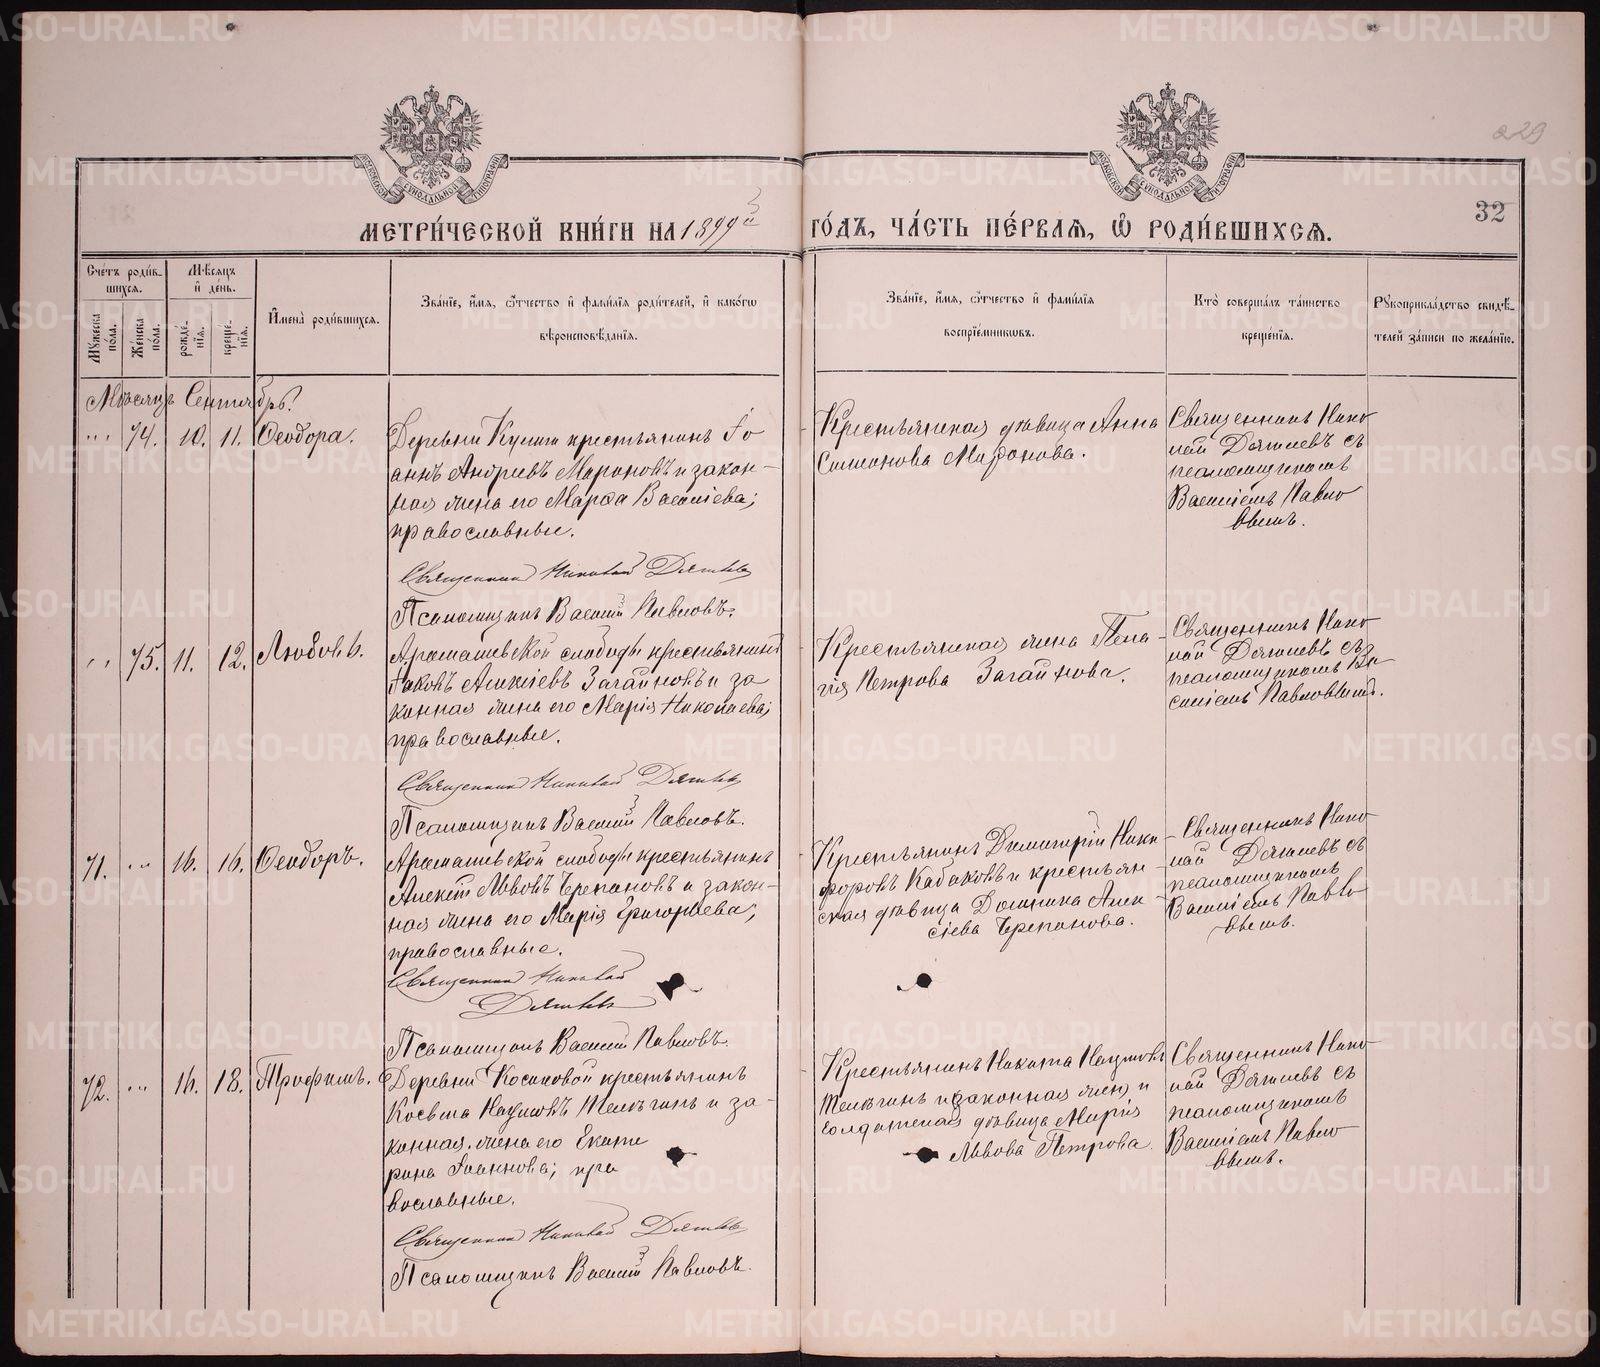 229
32
МЕТРИ́ЧЕСКОЙ КНИ́ГИ НА 1899й ГО́ДЪ, ЧА́СТЬ ПЕ́РВАЯ, Ѡ РОДИ́ВШИХСЯ.
Сче́тъ роди́вшихся.
Мѣ́сяцъ и де́нь.
Имена̀ роди́вшихся.
Зва́нїе, и́мя, ѻ́тчество и фами́лїя роди́телей, и како́гѡ вѣроисповѣ́данїя.
Зва́нїе, и́мя, ѻ́тчество и фами́лїя воспрїе́мникѡвъ.
Кто̀ соверша́лъ та́инство креще́нїя.
Рукоприкла́дство свидѣ́телей за́писи по жела́нїю.
Му́жеска по́ла.
Же́нска по́ла.
рожде́нїя.
креще́нїя.
Мѣсяцъ Сентябрь.
74. 10. 11. Ѳеодора.
Деревни
крестьянинъ Іо
аннъ Андреевъ Мироновъ и закон-
ная жена его Марѳа Василіева;
православные.
Священникъ Николай Дягилевъ
Псаломщикъ Василий Павловъ.
Крестьянская дѣвица Анна
Симеонова Миронова.
Священникъ Нико
лай Дягилевъ съ
псаломщикомъ
Василіемъ Павло
вымъ.
75. 11. 12. Любовь.
Арамашевской слободы крестьянинъ
Іаковъ Алексіевъ Загайновъ и за
конная жена его Марія Николаева;
православные.
Священникъ Николай Дягилевъ
Псаломщикъ Василий Павловъ.
Крестьянская жена Пела
гія Петрова Загайнова.
Священникъ Нико
лай Дягилевъ съ
псаломщикомъ Ва
силіемъ Павловымъ.
71. 16. 16. Ѳеодоръ.
Арамашевской слободы крестьянинъ
Алексій Львовъ Черепановъ и закон-
ная жена его Марія Григорьева;
православные.
Священникъ Николай
Дягилевъ
Псаломщикъ Василий Павловъ.
Крестьянинъ Димитрій Ники
форовъ Кабаковъ и крестьян
ская дѣвица Домника Алек
сіева Черепанова.
Священникъ Нико
лай Дягилевъ съ
псаломщикомъ
Василіемъ Павло
вымъ.
72. 16. 18. Трофимъ.
Деревни Косиковой крестьянинъ
Косьма Наумовъ Телѣгинъ и за-
конная жена его Екате
рина Іоаннова; пра
вославные.
Священникъ Николай Дягилевъ
Псаломщикъ Василий Павловъ.
Крестьянинъ Никита Наумовъ
Телѣгинъ и
солдатская дѣвица Марія
Львова Петрова.
Священникъ Нико
лай Дягилевъ съ
псаломщикомъ
Василіемъ Павло
вымъ.
METRIKI.GASO-URAL.RU